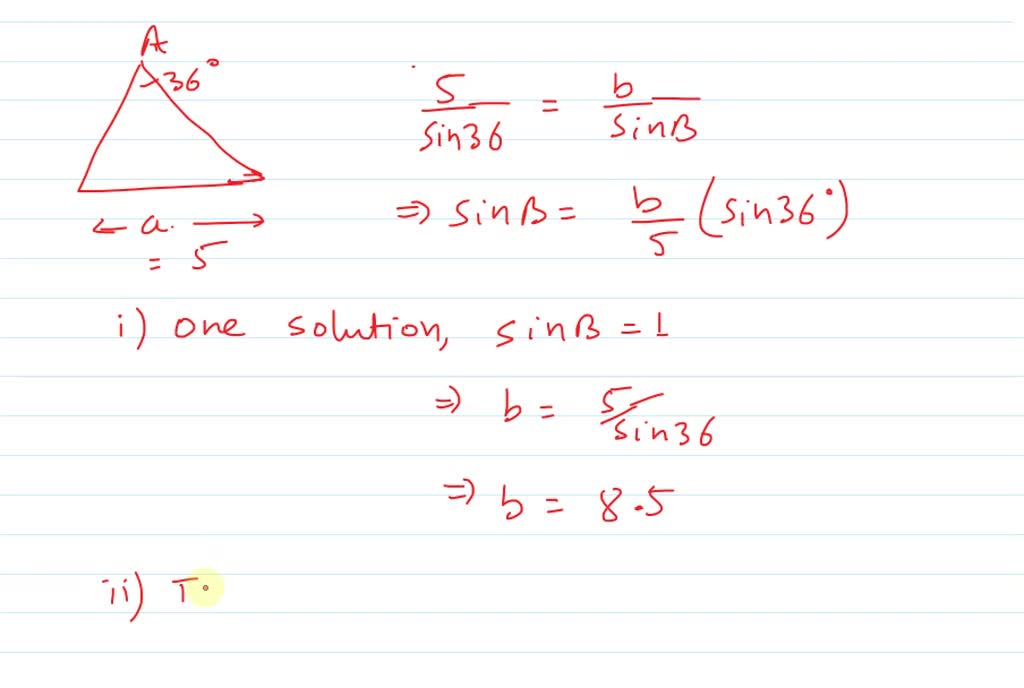 A
36°
a.
= 5
5/sin36 = b/sinB
⇒ sinB = b/5 (sin36°)
i) one solution, sinB = 1
⇒ b = 5/sin36
⇒ b = 8.5
ii) T